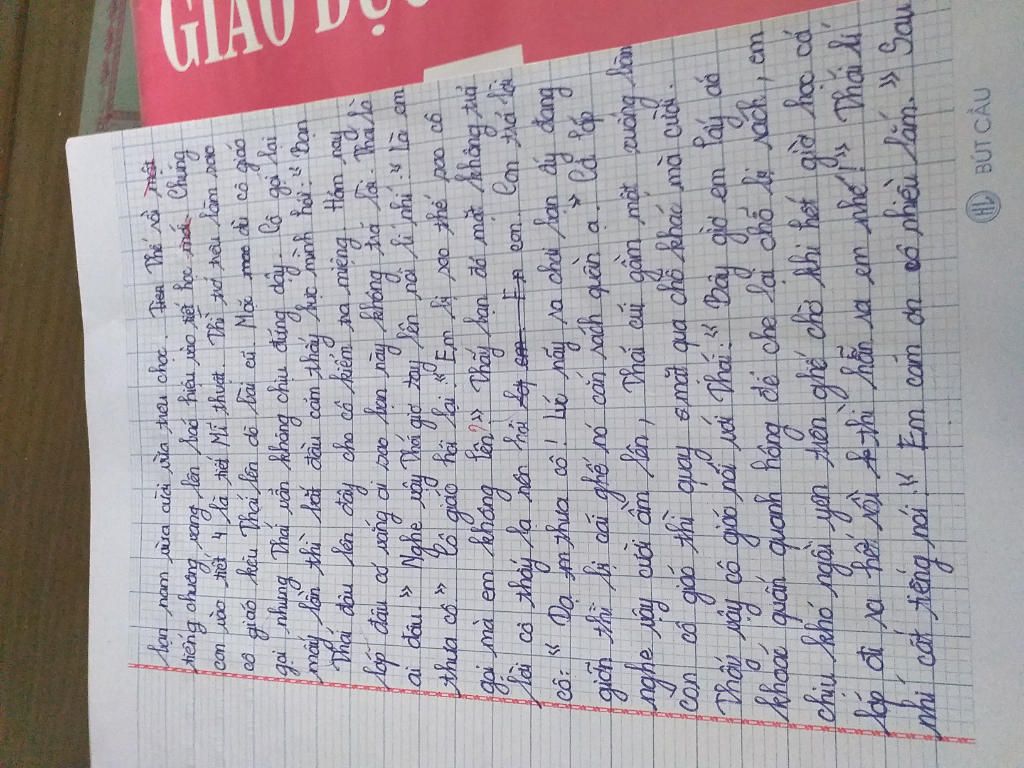 GIÁO DỤC
bọn nam vừa cười vừa trêu chọc. Thế rồi
tiếng chuông vang lên báo hiệu vào tiết học mới. Chúng
con vào tiết 4 là tiết Mĩ thuật. Thì tự nhiên làm sao
cô giáo kêu Thái lên dò bài cũ. Mỗi dù cô giáo
gọi nhưng Thái vẫn không chịu đứng dậy. Cô gọi lại
mấy lần thì bắt đầu cảm thấy bực mình hỏi: "Bạn
Thái đâu lên đây cho cô kiểm ra miệng. Hôm nay
lớp đâu có vắng ai sao bạn này không trả lời. Thái là
ai đâu." Nghe vậy Thái giơ tay lên nói lí nhí: "Là em
thưa cô" Cô giáo hỏi lại: "Em bị sao thế sao cô
gọi mà em không lên?" Thấy bạn đỏ mặt không trả
lời cô thấy lạ nên hỏi con. Con trả lời
cô: "Dạ em thưa cô! Lúc nãy ra chơi bạn ấy đang
giỡn thì bị cái ghế nó cắn rách quần ạ." Cả lớp
nghe vậy cười ầm lên, Thái cúi gầm mặt xuống bàn
Còn cô giáo thì quay mặt qua chỗ khác mà cười.
Thấy vậy cô giáo nói với Thái: "Bây giờ em lấy áo
khoác quấn quanh hông để che lại chỗ bị rách, em
chịu khó ngồi yên trên ghế chờ khi hết giờ học cả
lớp đi ra hết rồi thì hẵn ra em nhé!" Thái lí
nhí cất tiếng nói: "Em cảm ơn cô nhiều lắm." Sau
HL BÚT CÂU